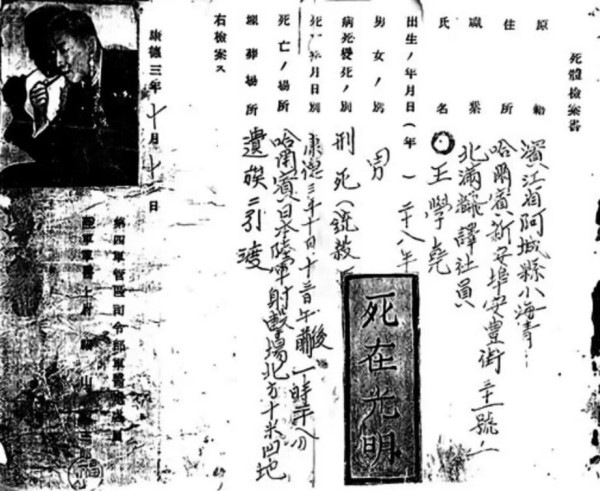 死體檢案書
原籍 濱江省阿城縣小海青
住所 哈爾濱新安埠安豐街
職業 北滿飜譯社員
氏名 王學堯
出生ノ年月日(年) 二十八年
男女ノ別 男
病死變死ノ別 刑死(銃殺
死 年月日別 康德三年十月十三日午後一時
死亡ノ場所 哈爾濱日本陸軍射擊場北方十米凹地
埋葬場所 遺族ニ引渡
右檢案ス
康德三年十月十 日
第四軍管區司令部軍醫處
陸軍軍醫 山
死在光明